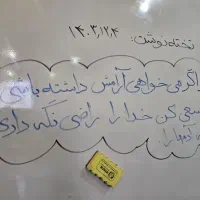 تخته نوشت:
۱۴۰۳,۱,۲۴
اگر می خواهی آرامش داشته باشی
سعی کن خدا را راضی نگه داری
نه آدمها را.